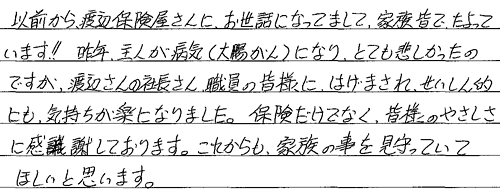 以前から、渡辺保険屋さんに、お世話になってまして、家族皆で、たよって
います!! 昨年、主人が病気(大腸がん)になり、とても悲しかったの
ですが、渡辺さんの社長さん、職員の皆様に、はげまされ、せいしん的
にも、気持ちが楽になりました。保険だけでなく、皆様のやさしさ
に感謝しております。これからも、家族の事を見守っていて
ほしいと思います。